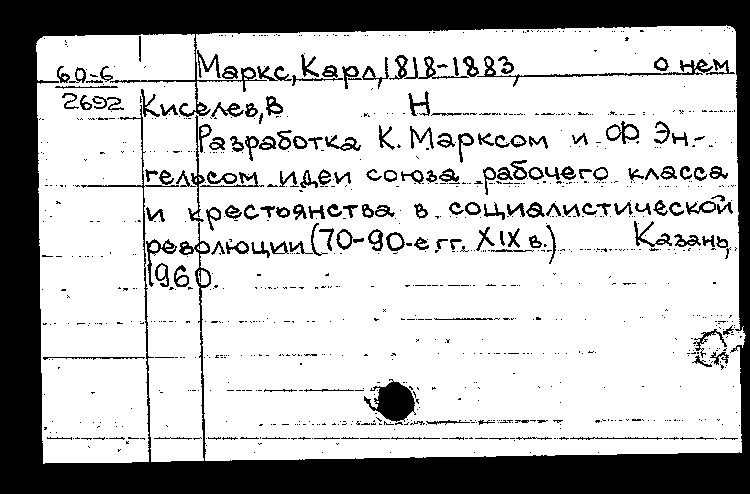 60-6 Маркс, Карл, 1818-1883, о нем
2692 Киселев, В Н
Разработка К. Марксом и Ф. Эн-
гельсом идеи союза рабочего класса
и крестьянства в социалистической
революции (70-90-е гг. XIX в.) Казань,
1960.